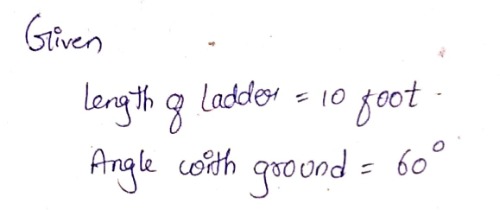 Given
Length of Ladder = 10 foot.
Angle with ground = 60°